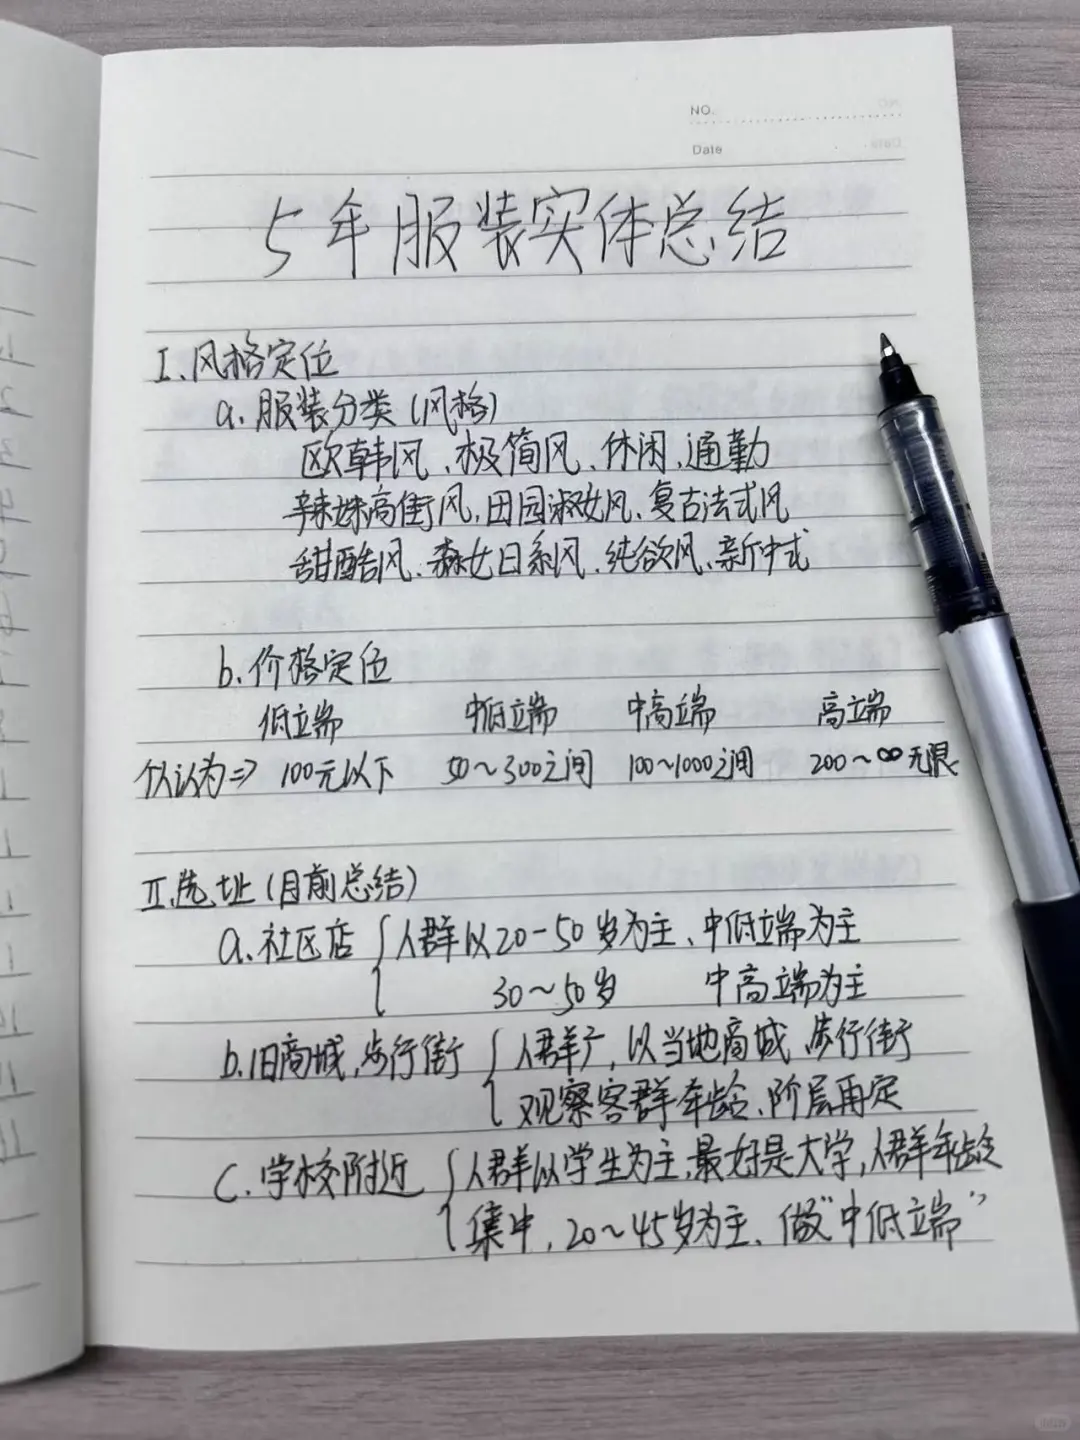 NO.
Date
5年服装实体总结
I、风格定位
a. 服装分类(风格)
欧韩风、极简风、休闲、通勤
辣妹高街风、田园淑女风、复古法式风
甜酷风、森女日系风、纯欲风、新中式
b. 价格定位
低端 中低端 中高端 高端
个人认为=> 100元以下 50~300之间 100~1000之间 200~∞无限
II、选址(目前总结)
a. 社区店 {人群以20-50岁为主、中低端为主
30~50岁 中高端为主
b. 旧商城,步行街 {人群广,以当地商城、步行街
观察客群年龄、阶层再定
C. 学校附近 {人群以学生为主,最好是大学,人群年龄
集中,20~45岁为主、做“中低端”